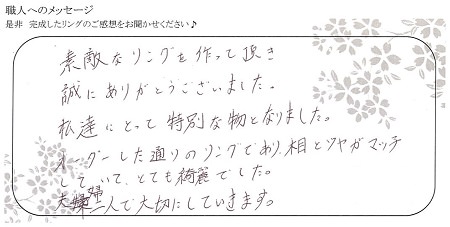 職人へのメッセージ
是非 完成したリングのご感想をお聞かせください♪
素敵なリングを作って頂き
誠にありがとうございました。
私達にとって特別な物となりました。
オーダーした通りのリングであり、相とツヤがマッチ
していて、とても綺麗でした。
夫婦二人で大切にしていきます。